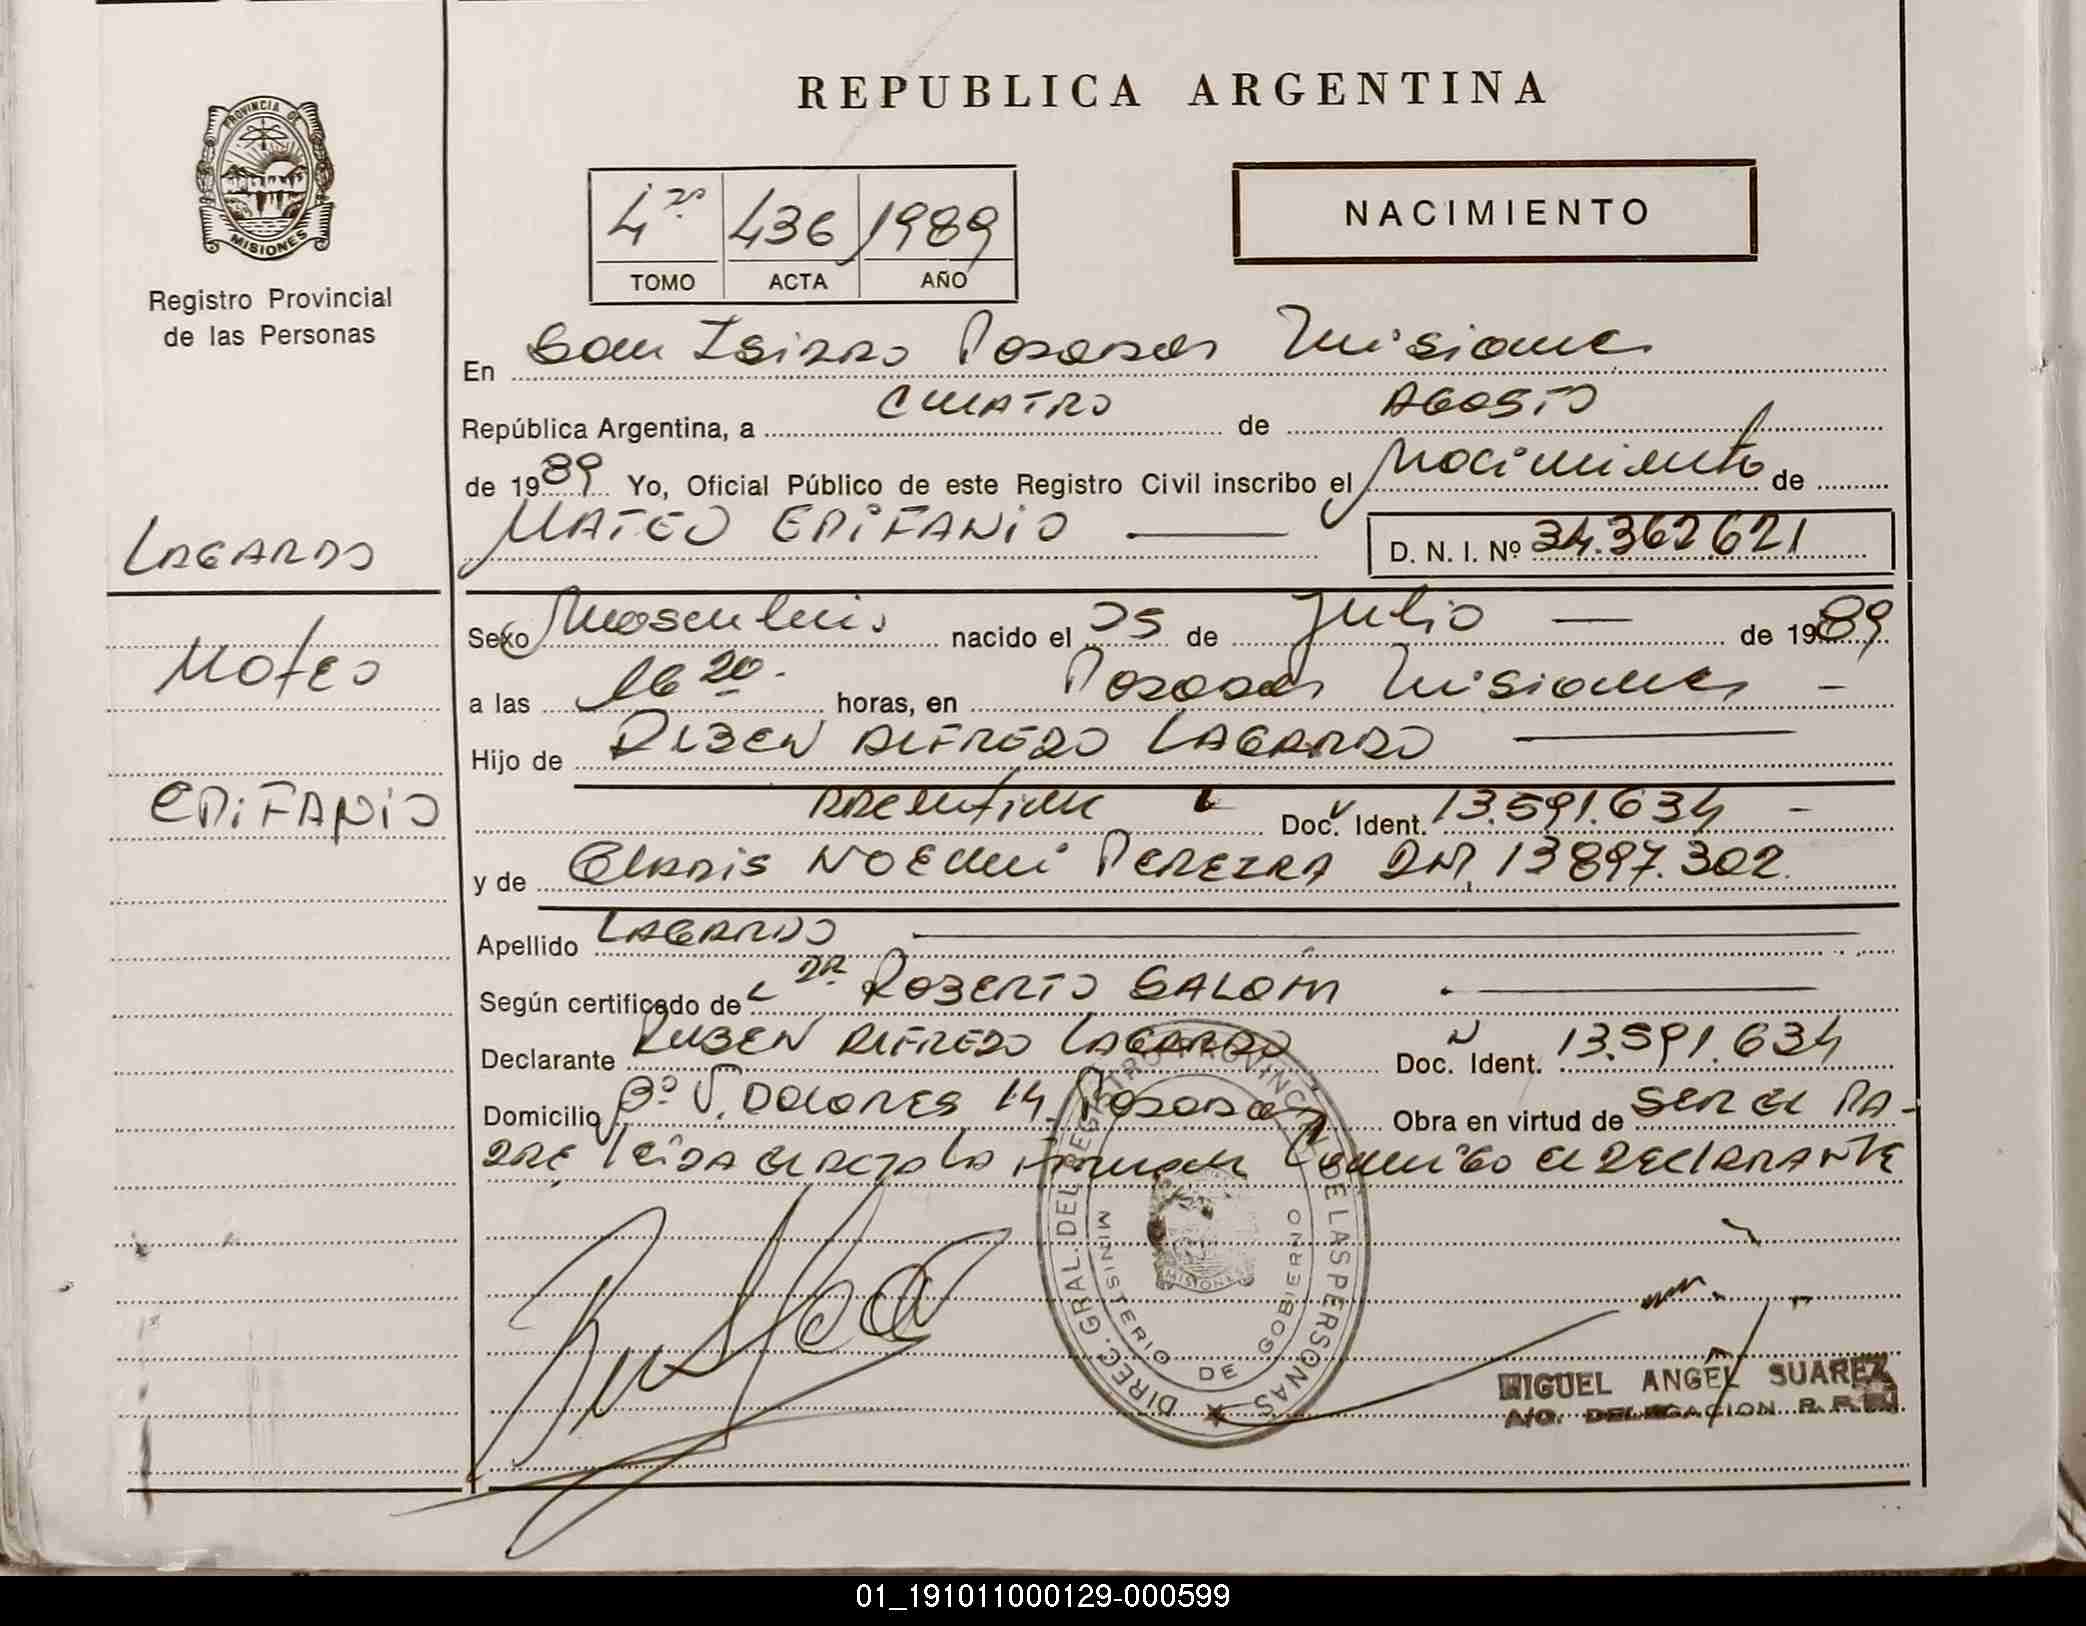 REPUBLICA ARGENTINA
PROVINCIA DE
MISIONES
Registro Provincial
de las Personas
4to 436 1989
TOMO ACTA AÑO
NACIMIENTO
En San Isidro Posadas Misiones
República Argentina, a CUATRO de AGOSTO
de 1989 Yo, Oficial Público de este Registro Civil inscribo el Nacimiento de
MATEO EPIFANIO
D. N. I. Nº 34.362621
LAGARDO
MATEO
EPIFANIO
Sexo Masculino nacido el 25 de Julio de 1989
a las 16 20. horas, en Posadas Misiones
Hijo de RUBEN ALFREDO LAGARDO
Doc. Ident. 13.591.634
y de GLADIS NOEMI PEREIRA DNI 13897.302.
Apellido LAGARDO
Según certificado de DR. ROBERTO SALOM
Declarante RUBEN ALFREDO LAGARDO Doc. Ident. 13.591.634
Domicilio Bº V. DOLORES 14 Posadas Obra en virtud de SER EL PA-
DRE leida el acta la firman Conmigo el DECLARANTE
DIREC. GRAL. DEL REGISTRO PROVINCIAL DE LAS PERSONAS
MINISTERIO DE GOBIERNO
MISIONES
MIGUEL ANGEL SUAREZ
A/C. DELEGACION R. P.
01_191011000129-000599